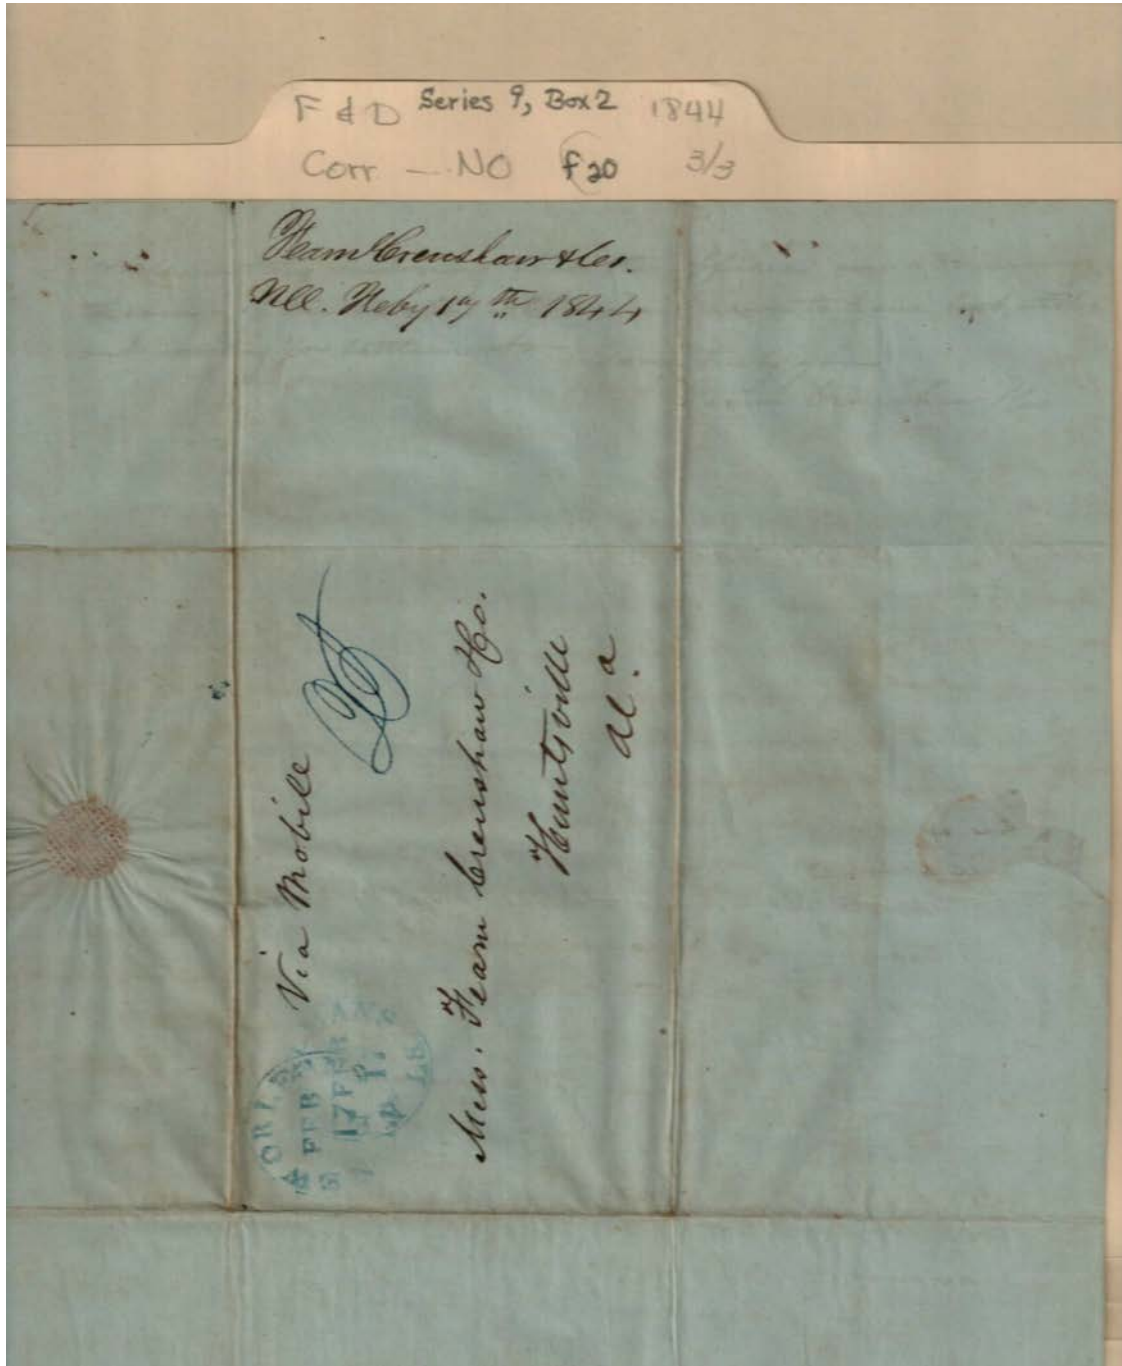 F & D Series 9, Box 2 1844
Corr — NO f 20 3/3
Fearn Crenshaw & Co.
Feby 17th 1844
Via Mobile
Mess. Fearn Crenshaw & Co.
Huntsville
Ala.
FEB
17 FEB
LA